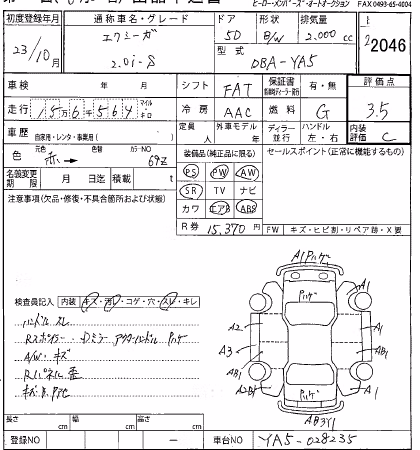 ヒーロー・メンバーズ・オートオークション FAX 0493-65-4004
初度登録年月 通称車名・グレード ドア 形状 排気量
23/10月 エクシーガ 2.0i-S 5D B/W 2,000 cc
型式 DBA-YA5
2046
車検 年 月 シフト FAT 保証書 有・無 評価点
走行 156,564 マイル キロ 冷房 AAC 燃料 G 3.5
車歴 自家用・レンタ・事業用( ) 定員 人 外車モデル 年 ディーラー 並行 ハンドル 左・右 内装評価 C
色 元色 赤 → 色替 カラーNO 69Z
装備品(純正品に限る) セールスポイント(正常に機能するもの)
名義変更期限 月 日迄 積載 t
PS PW AW
SR TV ナビ
カワ エアB ABS
R券 15,370 円
注意事項(欠品・修復・不具合箇所および状態)
FW キズ・ヒビ割・リペア跡・X
検査員記入 内装 キズ・汚レ・コゲ・穴・スレ・キレ
ハンドル スレ
Rスポイラー・Dミラー アウターハンドル ハゲ
A/W キズ
Rパネル
A1 ハゲ
ハゲ
A1 A1
A2 A1
A3 AB1
AB1 A1
A2B1
ハゲ
AB3Y1
長さ cm 幅 cm 高さ cm
登録NO ー 車台NO YA5-028235